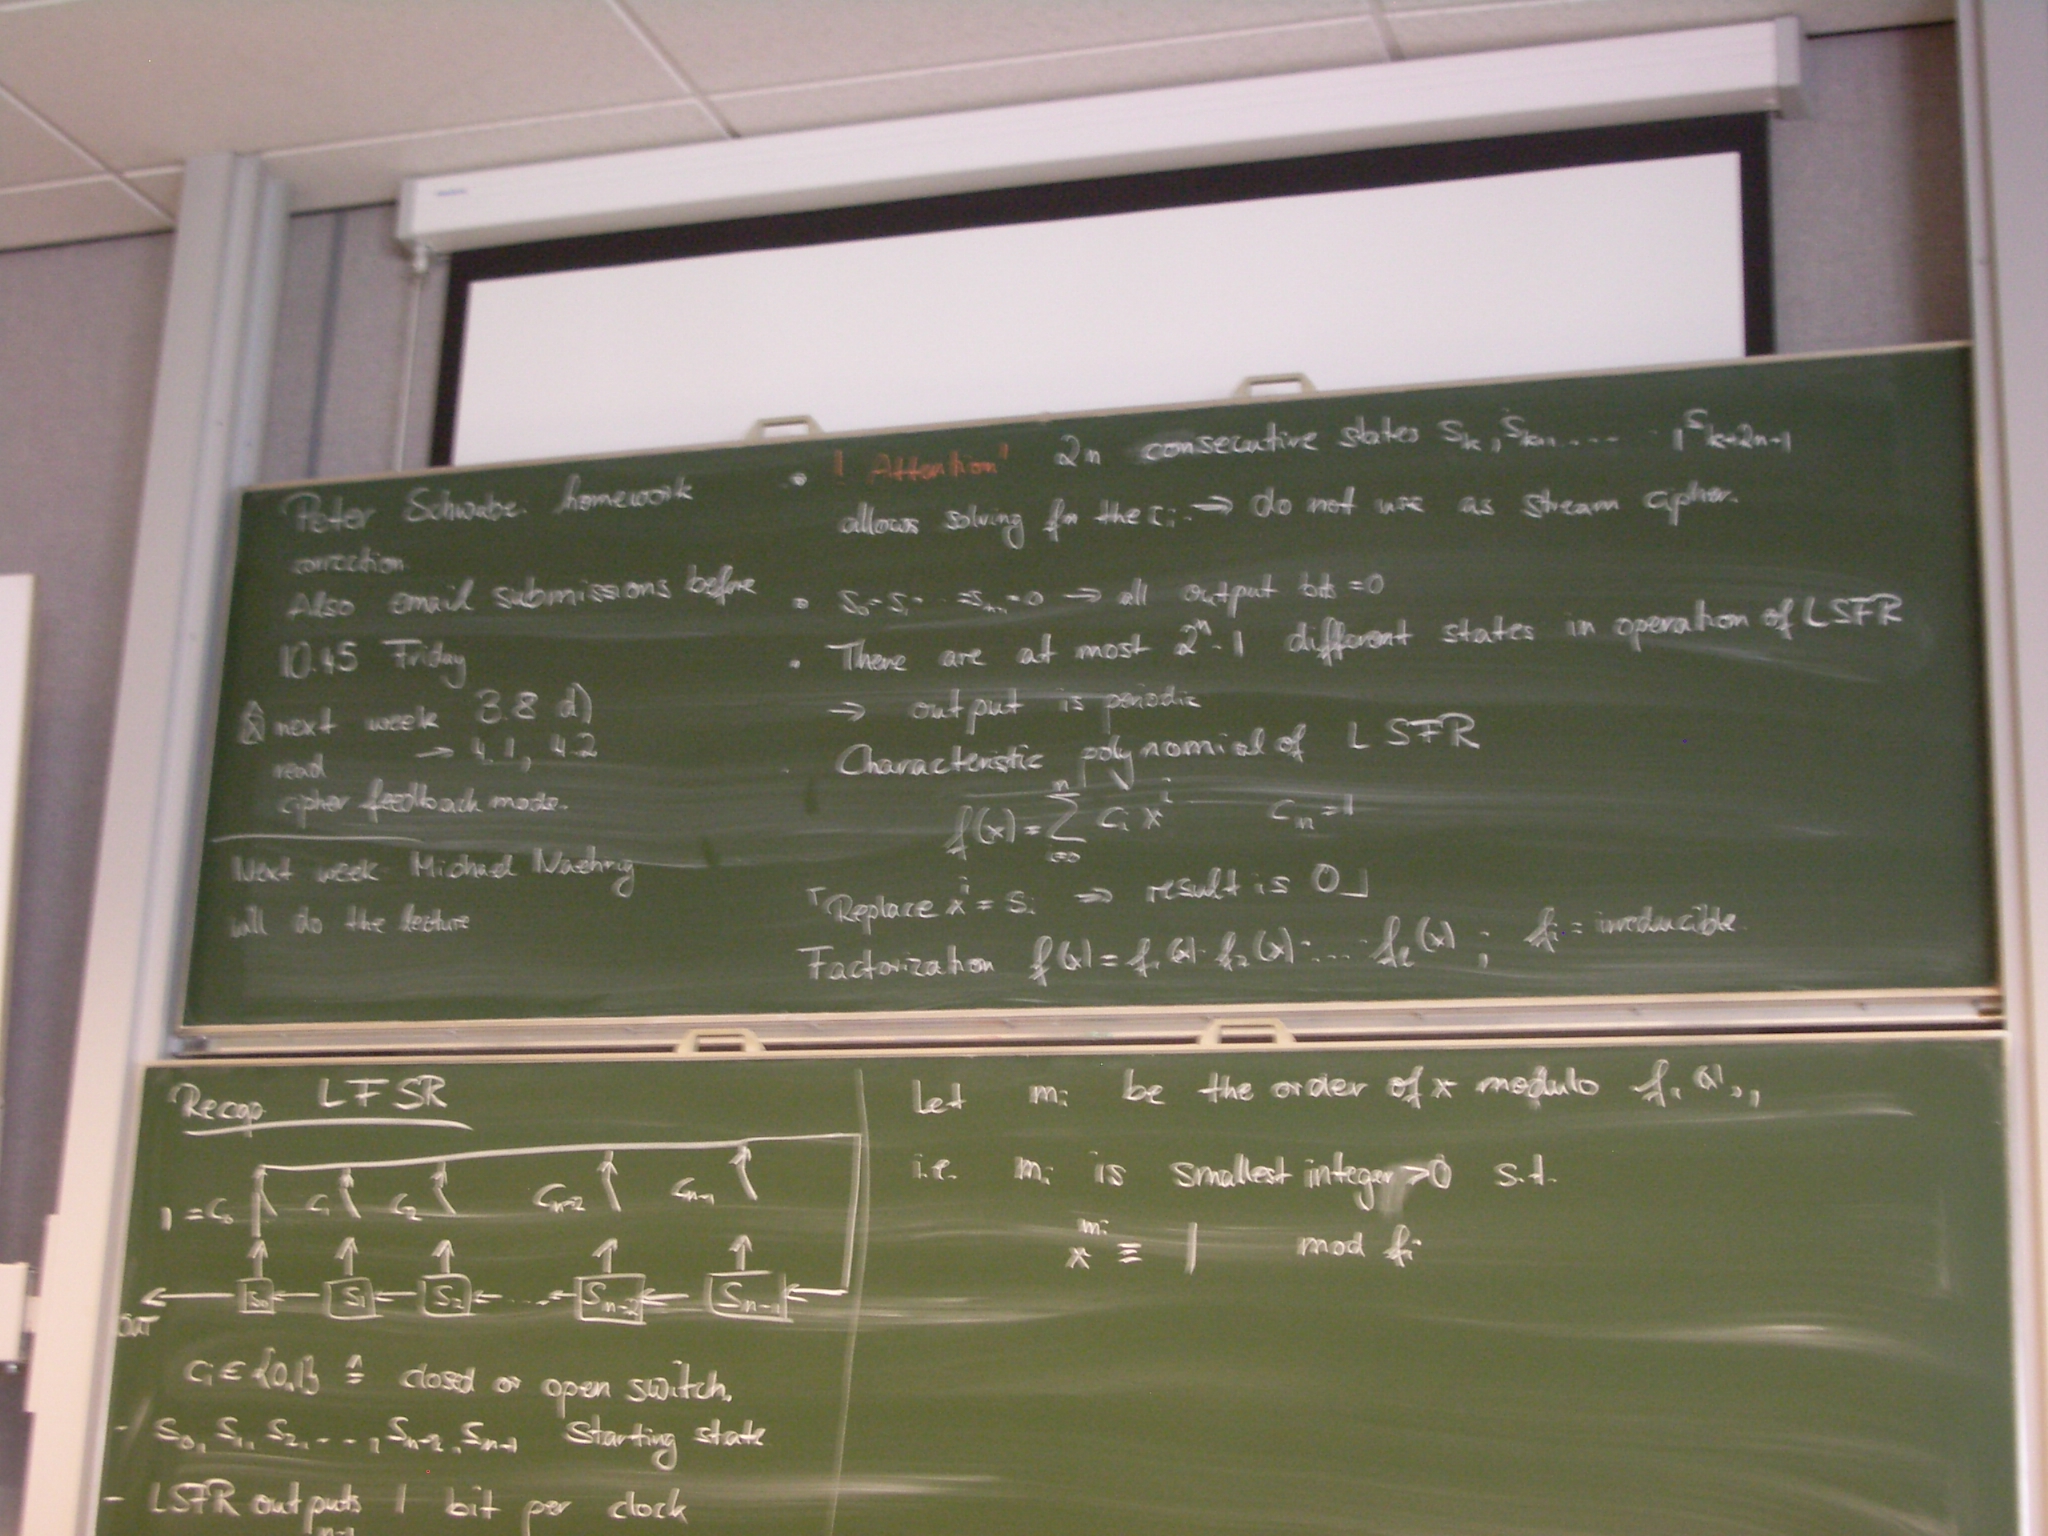 Peter Schwabe: homework
correction.
Also email submissions before
10.45 Friday
next week 3.8 d)
read → 4.1, 4.2
cipher feedback mode.
Next week Michael Naehrig
will do the lecture
• ! Attention! 2n consecutive states S_k, S_k+1, ..... , S_k+2n-1
allows solving for the c_i. → do not use as stream cipher.
• S_0=S_1=...=S_n-1=0 → all output bits =0
• There are at most 2^n-1 different states in operation of LSFR
→ output is periodic
• Characteristic polynomial of LSFR
f(x) = Σ_{i=0}^{n} c_i x^i c_n=1
⌈Replace x^i = s_i ⇒ result is 0⌋
Factorization f(x) = f_1(x)·f_2(x)·...·f_l(x) ; f_i = irreducible.
Recap LFSR
1 = c_0 c_1 c_2 c_n-2 c_n-1
OUT S_0 S_1 S_2 ..... S_n-2 S_n-1
c_i ∈ {0,1} ≙ closed or open switch.
- S_0, S_1, S_2, ..., S_n-2, S_n-1 Starting state
- LSFR outputs 1 bit per clock
n-1
Let m_i be the order of x modulo f_i(x),
i.e. m_i is smallest integer >0 s.t.
x^{m_i} ≡ 1 mod f_i